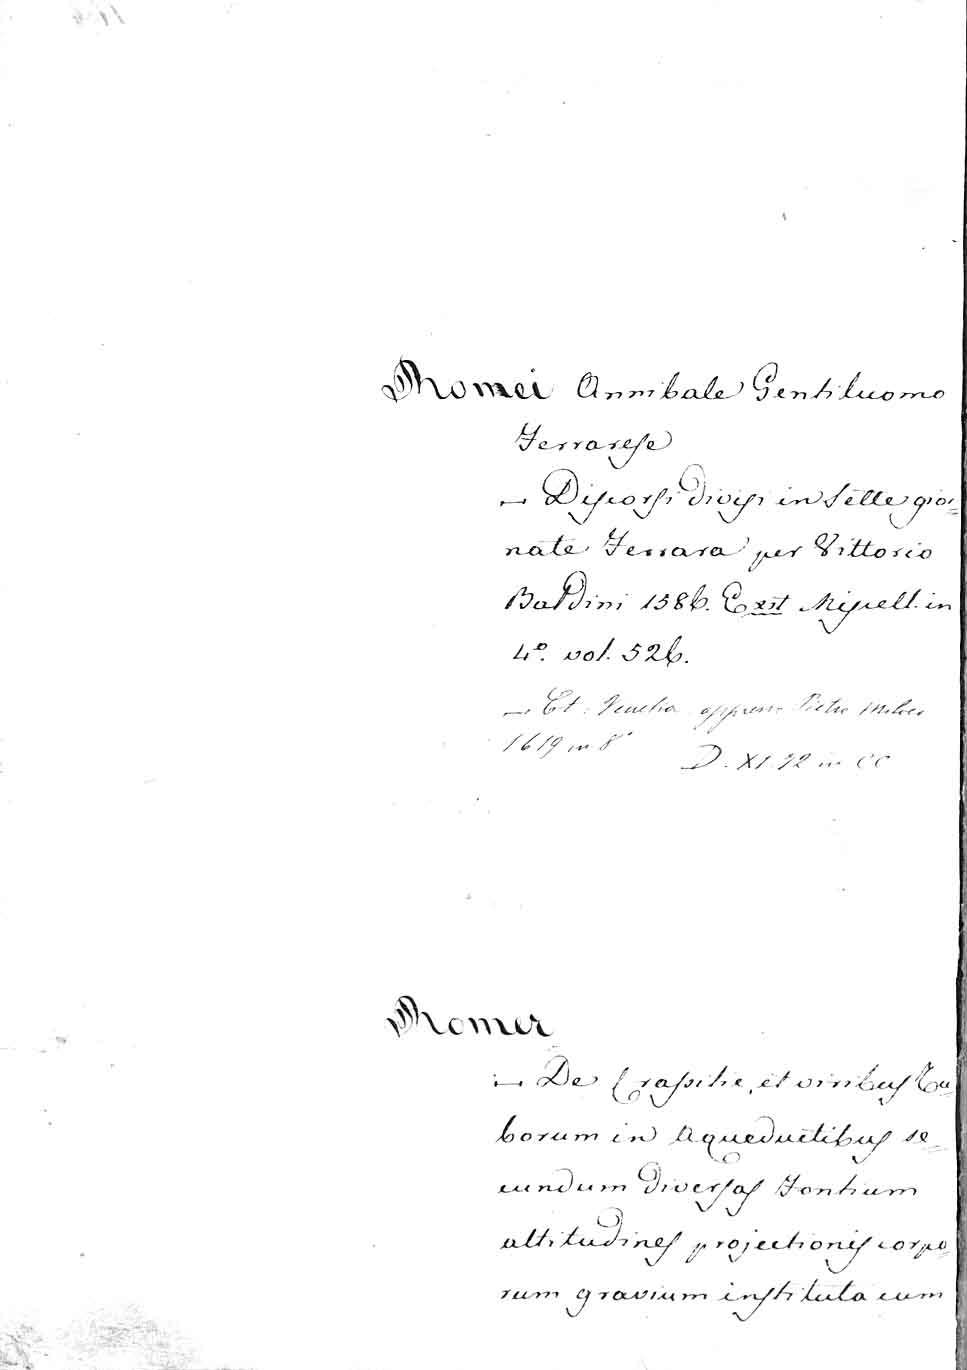 Romei Annibale Gentiluomo
Ferrarese
— Discorsi divisi in sette gior=
nate Ferrara per Vittorio
Baldini 1586. Exst Miscell. in
4º. vol. 526.
— Et. Venetia appresso Pietro
1619 in 8º
D. XI. 92 in CC
Romer
— De Crassitie, et viribus Tu=
borum in Aqueductibus se=
cundum diversas Fontium
altitudines projectionis corpo=
rum gravium instituta cum